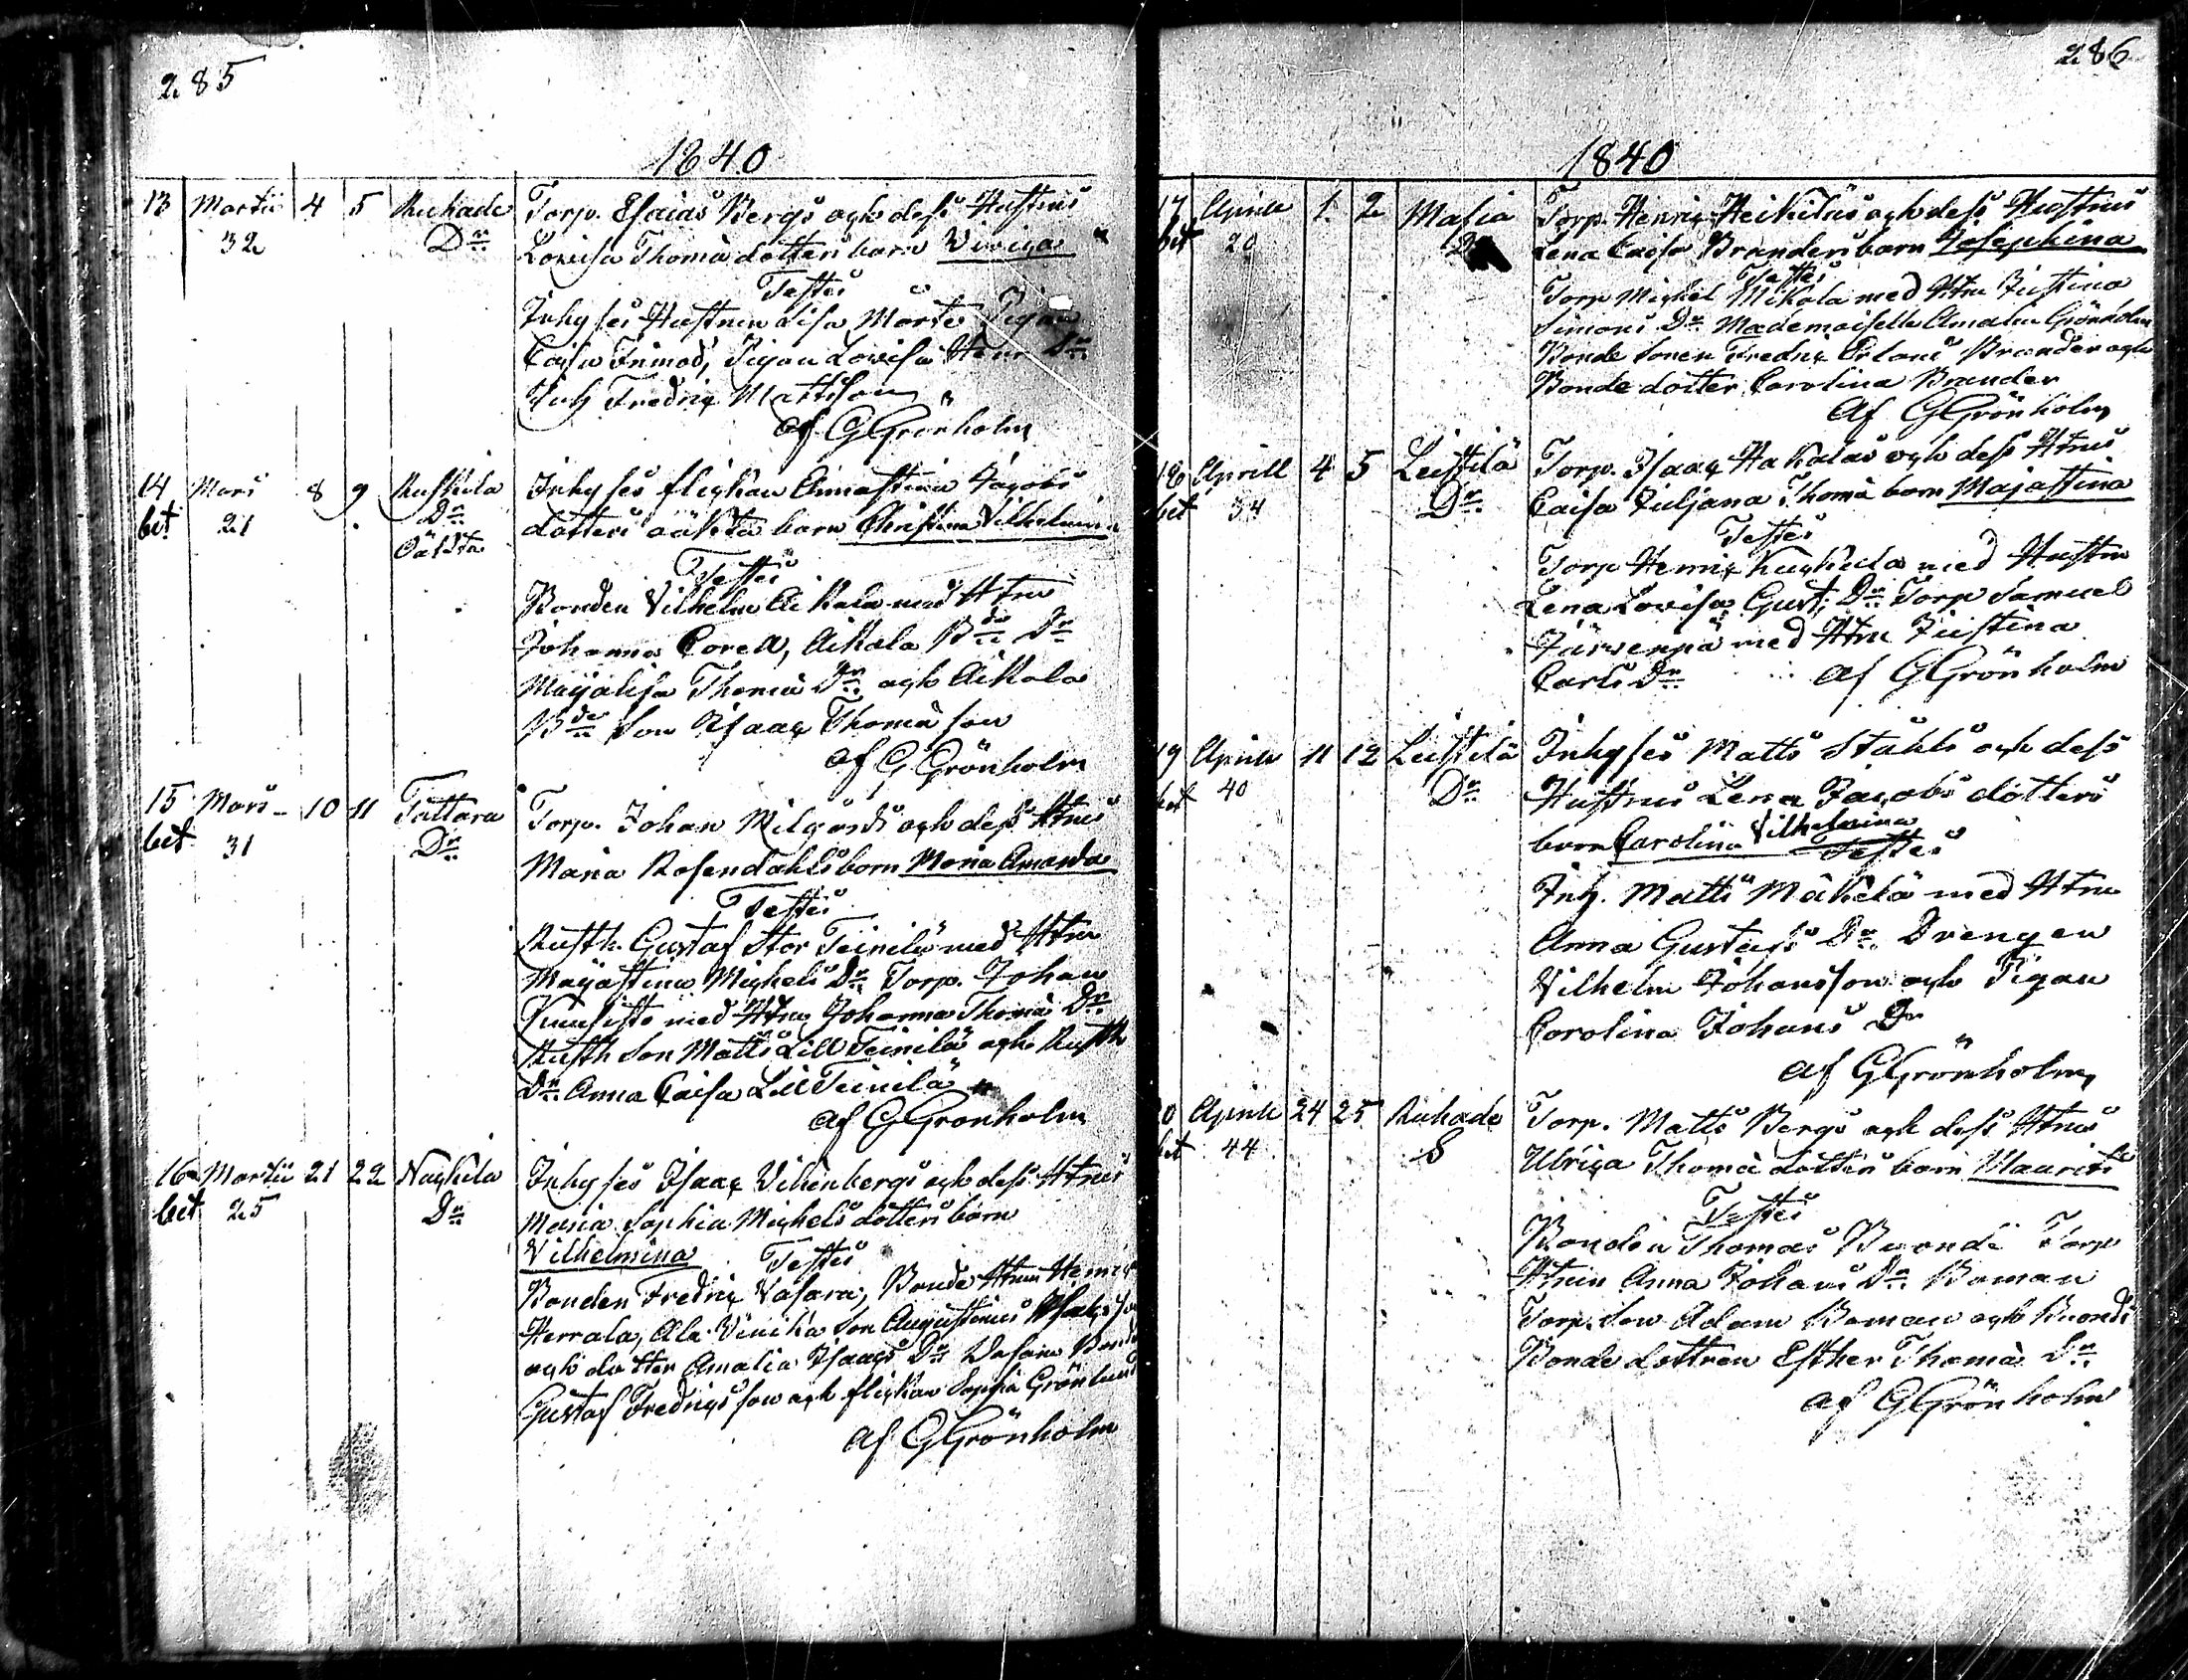 285
1840
13 Martii 4 5 Ruhade Torp. Esaias Bergs och dess Hustrus
32 Dr Lovisa Thomä dotters barn Viviga
Testes
Inhyses Hustrun Lisa Mörte Pigan
Caisa Frimod, Pigan Lovisa Henr Dr
Inh Fredric Mattsson
af G Grönholm
14 Mars 8 9 Ruskila Inhyses flickan Annastina Jacobs
bet 21 Dr dotters oäkta barn Christina Vilhelmina
Oäkta
Testes
Bonden Vilhelm Aikala med Htru
Johanna Corell, Aikala Bde Dr
Majalisa Thomä Dr och Aikala
Bde Son Isaac Thomä son
af G Grönholm
15 Mars 10 11 Tattara Torp. Johan Milgårds och dess Htrus
bet 31 Dr Maria Rosendahls barn Maria Amanda
Testes
Rusth. Gustaf Stor Teinilä med Htru
Majastina Michels Dr Torp. Johan
Kuusisto med Htru Johanna Thomä Dr
Rusth Son Matts Lill Teinilä och Rusth
Dr Anna Caisa Lill Teinilä
af G Grönholm
16 Martii 21 22 Naskila Inhyses Isaac Vikenbergs och dess Htrus
bet 25 Dr Maria Sophia Michels dotters barn
Vilhelmina Testes
Bonden Fredric Vasara, Bonde Htrun Henric
Herrala, Ala Vinika Son Augustinus Isacsson
och dotter Amalia Isaacs Dr Vasara Bonde
Gustaf Fredrics son och flickan Sophia Grönlund
af G Grönholm
286
1840
17 Aprill 1 2 Masia Torp. Henric Heikiläs och dess Hustrus
bet 20 Lena Caisa Branders barn Josephina
Testes
Torp Michel Mikola med Htru Justina
Simons Dr Mademoiselle Amalia Grönholm
Bonde Sonen Fredric Erland Brander och
Bonde dotter Carolina Brander
Af G Grönholm
18 Aprill 4 5 Leistilä Torp. Isaac Hakalas och dess Htrus
bet 34 Dr Caisa Juljana Thomä barn Majastina
Testes
Torp Henric Kuckula med Hustru
Lena Lovisa Gust. Dr Torp Samuel
Järvenpä med Htru Justina
Carls Dr af G Grönholm
19 Aprill 11 12 Leistilä Inhyses Matts Ståhls och dess
bet 40 Dr Hustrus Lena Jacobs dotters
barn Carolina Vilhelmina
Testes
Inh. Matts Mäkelä med Htru
Anna Gustafs Dr Drengen
Vilhelm Johansson och Pigan
Carolina Johans Dr
af G Grönholm
20 Aprill 24 25 Ruhade Torp. Matts Bergs och dess Htrus
bet 44 S Ulrica Thomä dotters barn Maurits
Testes
Bonden Thomas Buondi Torp
Htrun Anna Johans Dr Boman
Torp. Son Adam Boman och Buondi
Bonde dottren Esther Thomä Dr
af G Grönholm